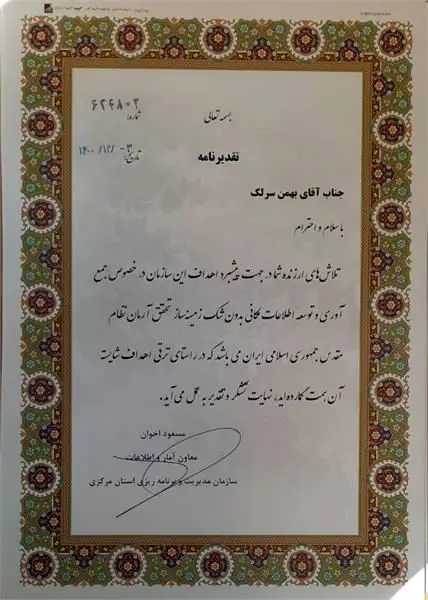 بسمه تعالی
شماره: ۶۲۴۸۰۲
تاریخ: ۱۴۰۰/۱۲/۰۳
تقدیرنامه
جناب آقای بهمن سرلک
با سلام و احترام
تلاش‌های ارزنده شما در جهت پیشبرد اهداف این سازمان در خصوص جمع
آوری و توسعه اطلاعات مکانی بدون شک زمینه‌ساز تحقق آرمان نظام
مقدس جمهوری اسلامی ایران می باشد که در راستای ترقی اهداف شایسته
آن همت گمارده‌اید، نهایت تشکر و تقدیر به عمل می‌آید.
مسعود اخوان
معاون آمار و اطلاعات
سازمان مدیریت و برنامه ریزی استان مرکزی